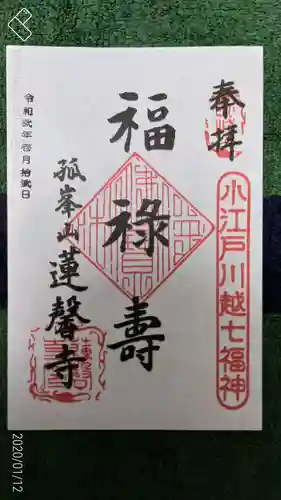 奉拝
小江戸川越七福神
福禄寿
孤峯山 蓮馨寺
令和弐年壱月拾弐日
2020/01/12